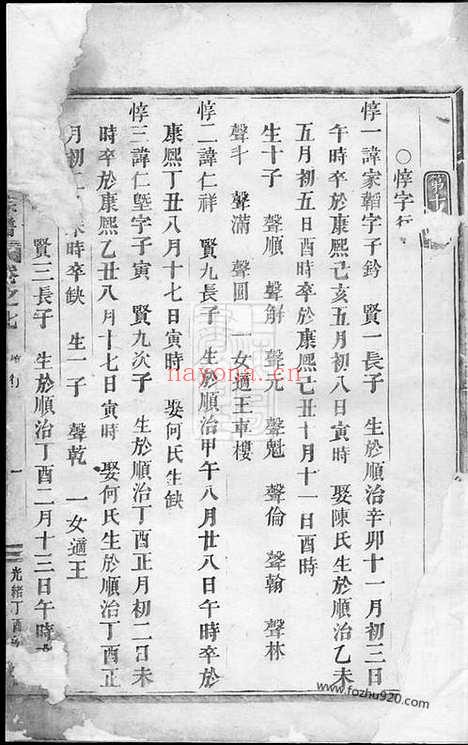 第十
○惇字行
惇一諱家韜字子鈐　賢一長子　生於順治辛卯十一月初三日
午時卒於康熙己亥五月初八日寅時　娶陳氏生於順治乙未
五月初五日酉時卒於康熙己丑十月十一日酉時
生十子　聲順　聲觧　聲元　聲魁　聲倫　聲翰　聲林
聲斗　聲滿　聲圓　一女適王車樓
惇二諱仁祥　賢九長子　生於順治甲午八月廿八日午時卒於
康熙丁丑八月十七日寅時　娶何氏生缺
惇三諱仁壂字子寅　賢九次子　生於順治丁酉正月初二日未
時卒於康熙乙丑八月十七日寅時　娶何氏生於順治丁酉正
月初二　時卒缺　生一子　聲乾　一女適王
賢三長子　生於順治丁酉二月十三日午時
譜　卷之七　行　一　光緒丁酉
nayona.cn
www.fozhu920.com